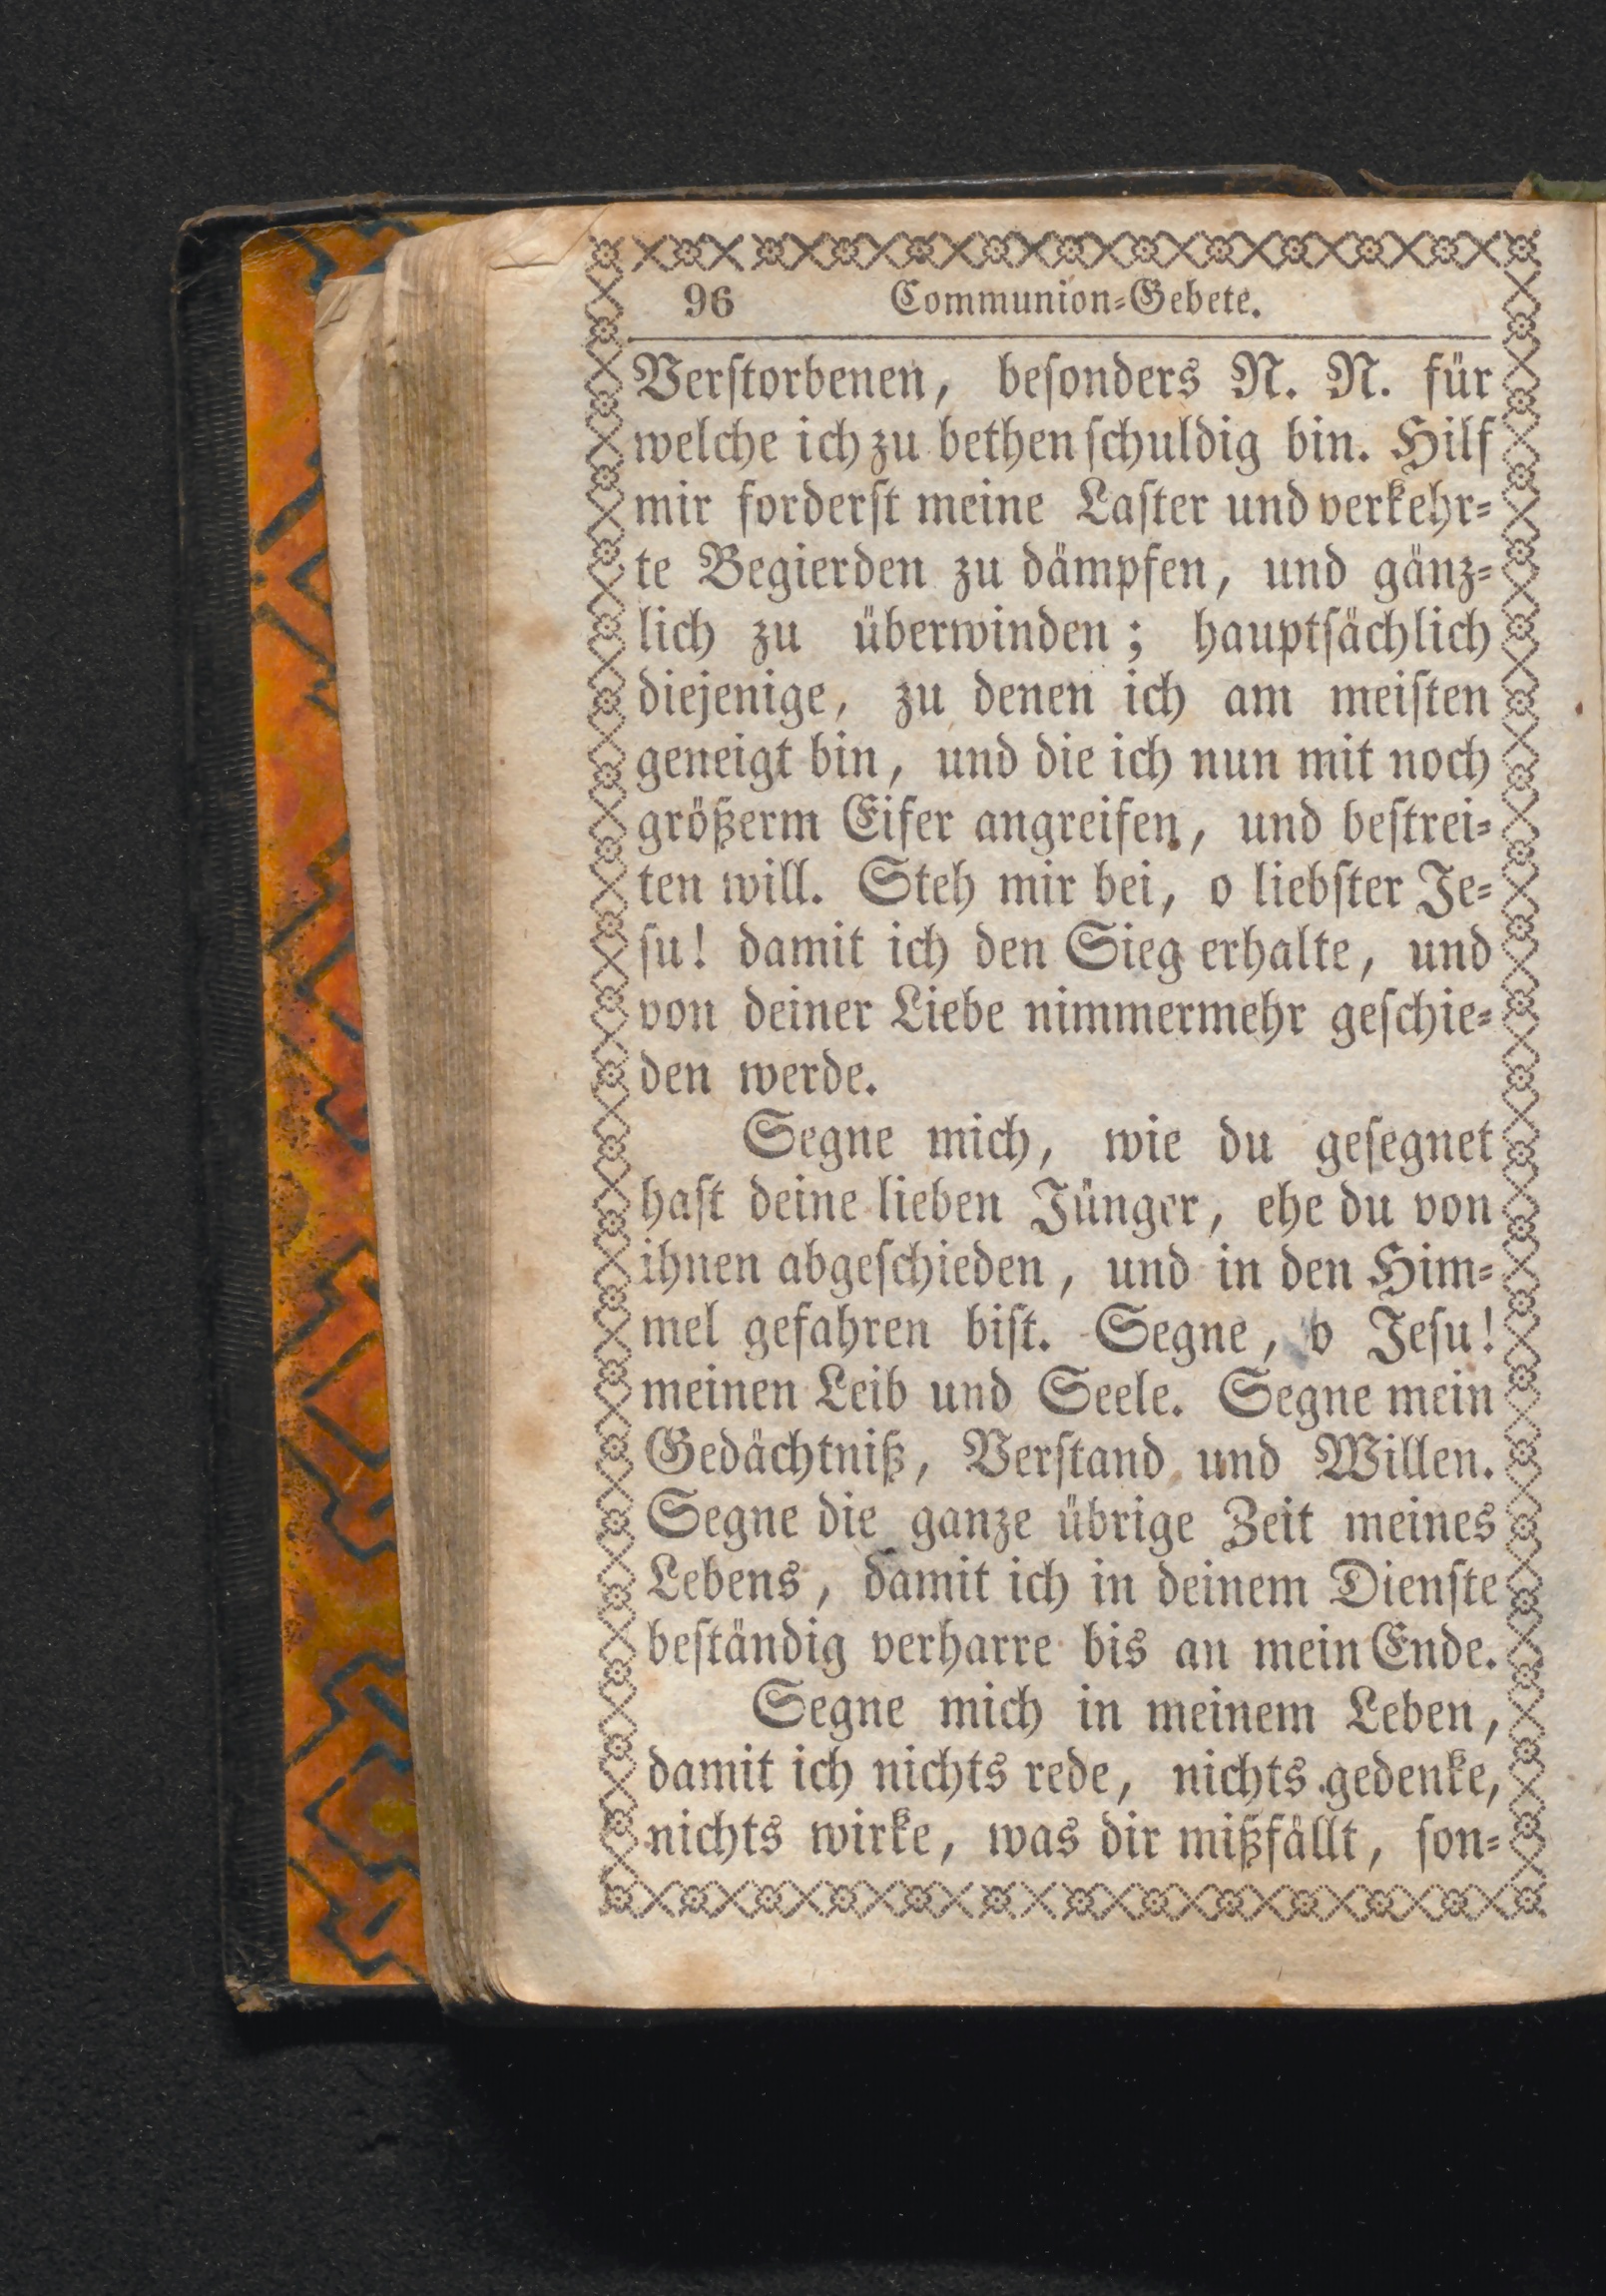 96 Communion-Gebete.
Verſtorbenen, beſonders N. N. für
welche ich zu bethen ſchuldig bin. Hilf
mir forderſt meine Laſter und verkehr-
te Begierden zu dämpfen, und gänz-
lich zu überwinden; hauptſächlich
diejenige, zu denen ich am meiſten
geneigt bin, und die ich nun mit noch
größerm Eifer angreifen, und beſtrei-
ten will. Steh mir bei, o liebſter Je-
ſu! damit ich den Sieg erhalte, und
von deiner Liebe nimmermehr geſchie-
den werde.
Segne mich, wie du geſegnet
haſt deine lieben Jünger, ehe du von
ihnen abgeſchieden, und in den Him-
mel gefahren biſt. Segne, o Jeſu!
meinen Leib und Seele. Segne mein
Gedächtniß, Verſtand und Willen.
Segne die ganze übrige Zeit meines
Lebens, damit ich in deinem Dienſte
beſtändig verharre bis an mein Ende.
Segne mich in meinem Leben,
damit ich nichts rede, nichts gedenke,
nichts wirke, was dir mißfällt, ſon-